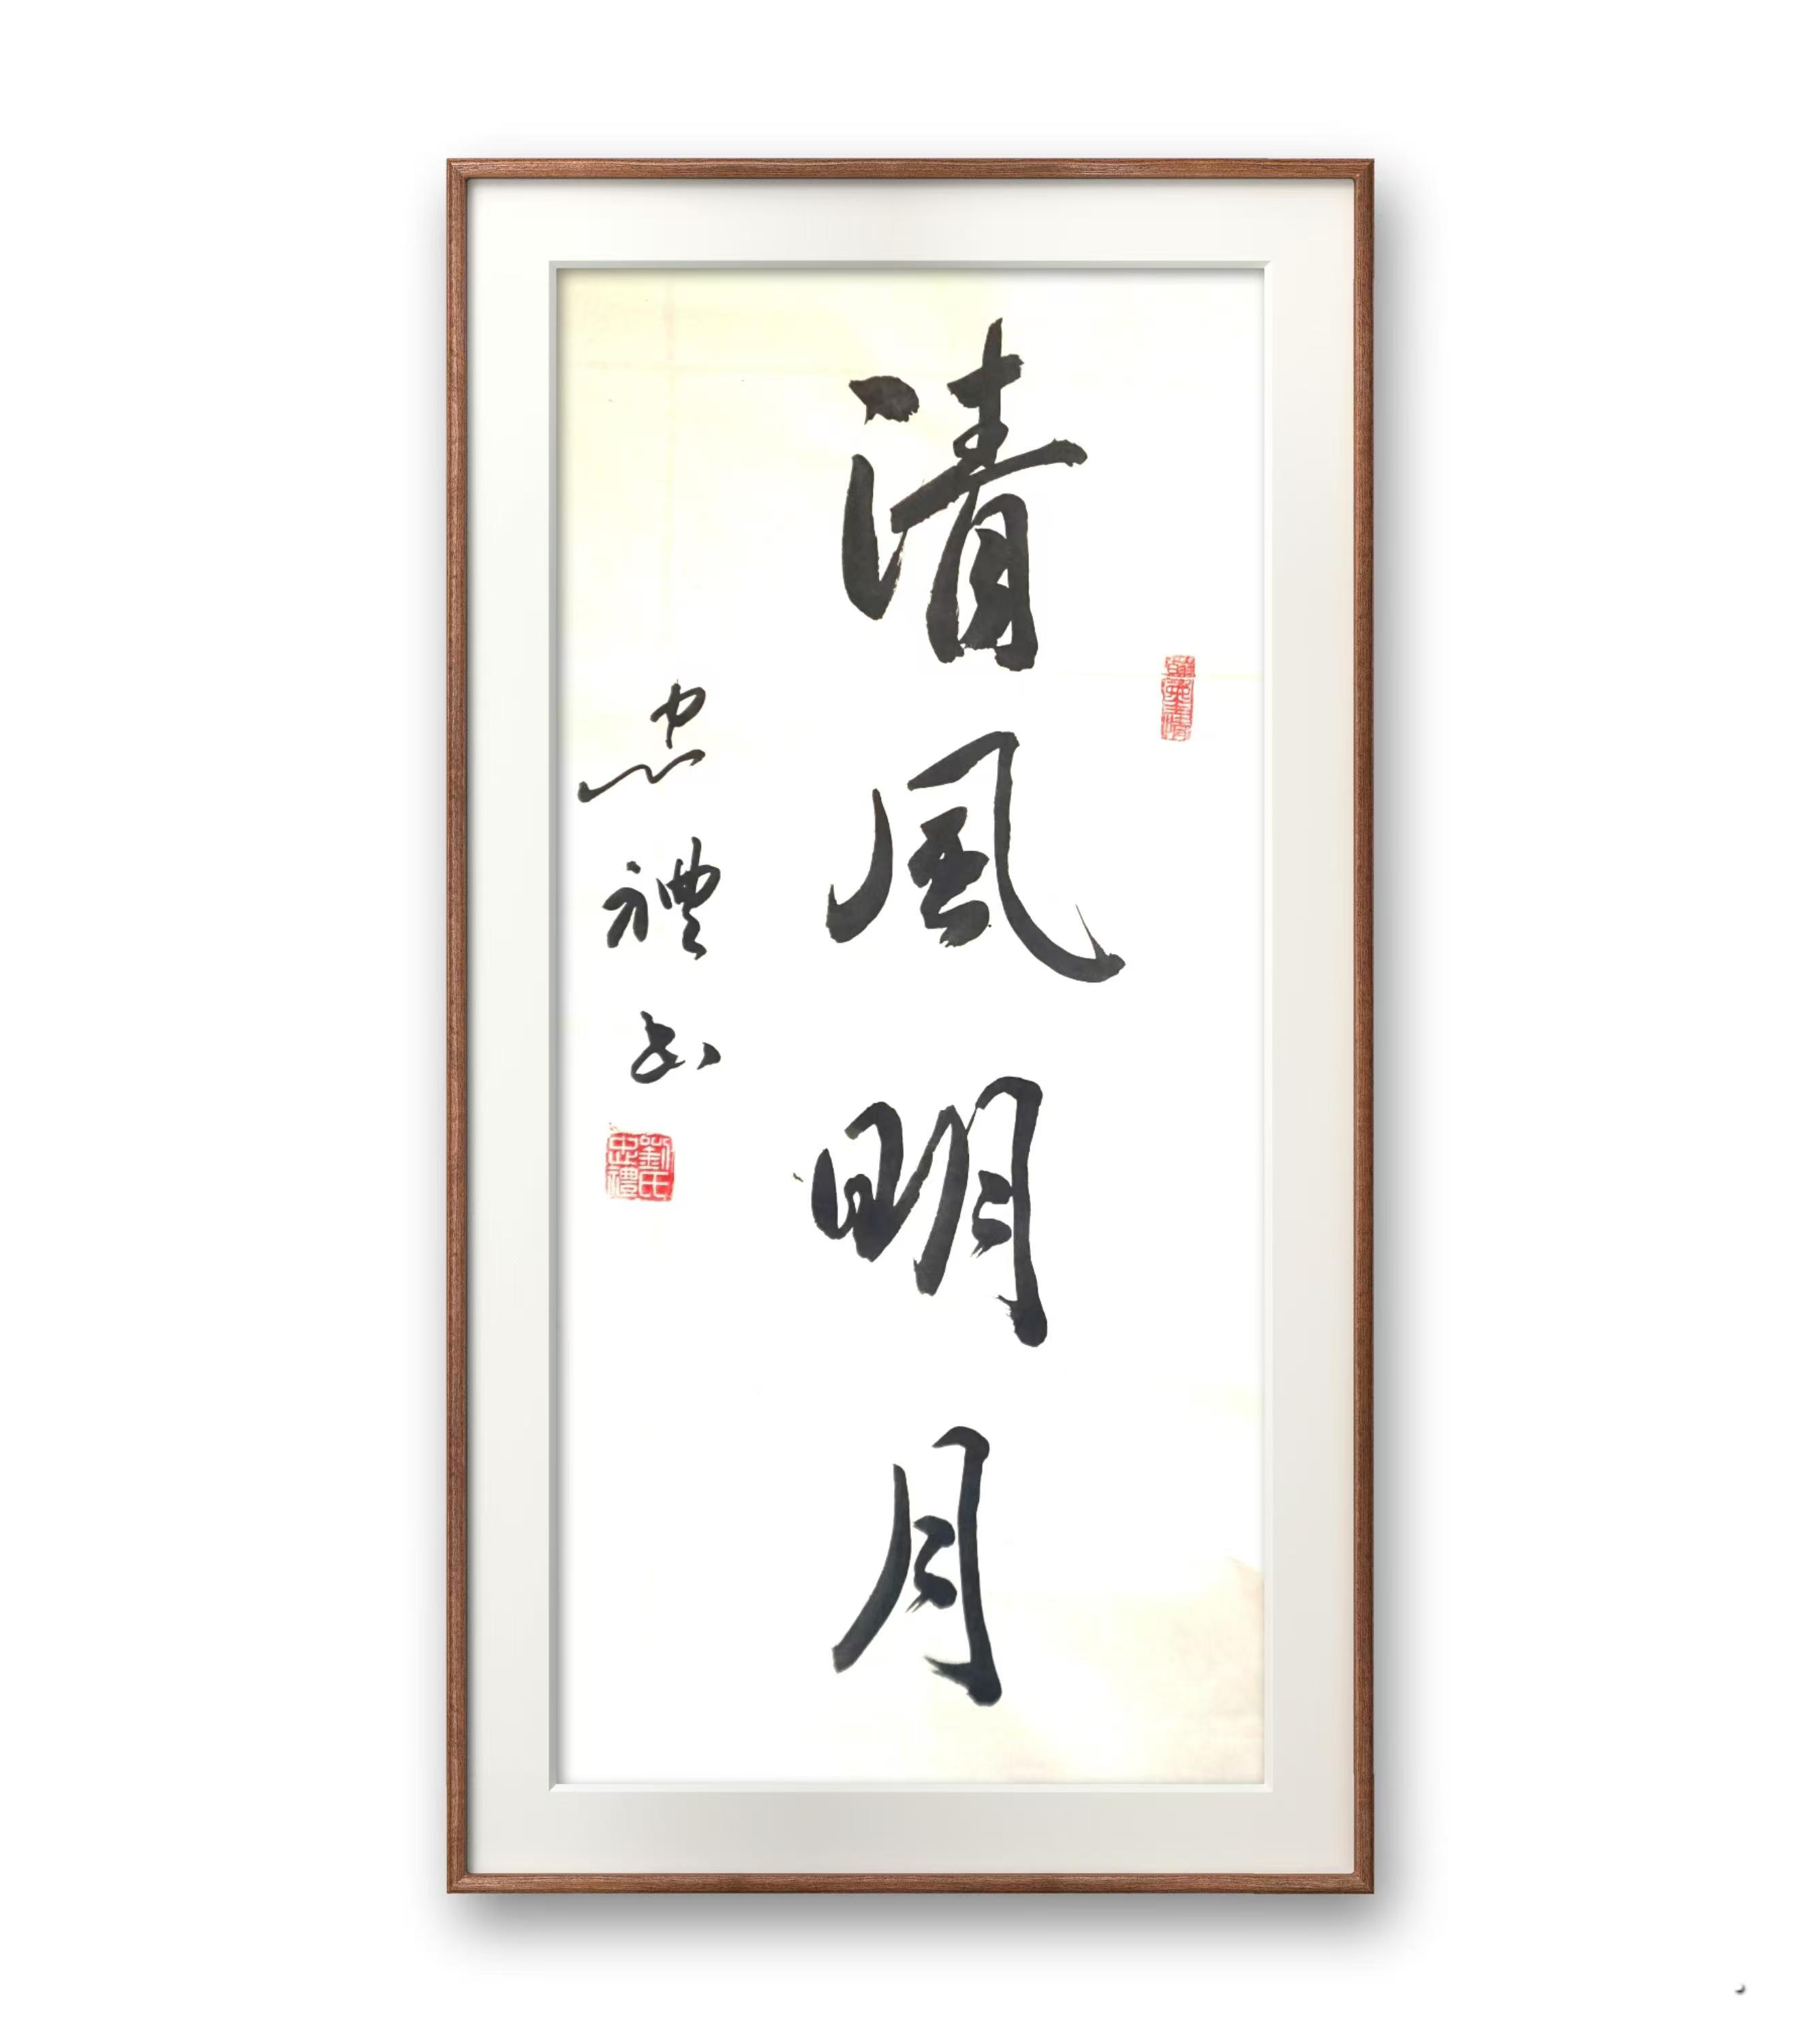 清風明月
忠禮书
劉氏忠禮